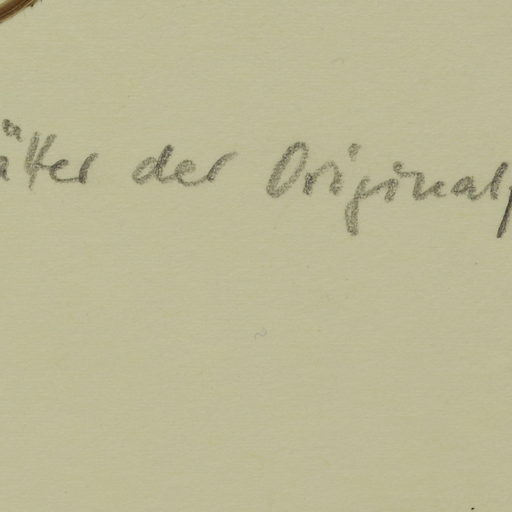 ätter der Originalp